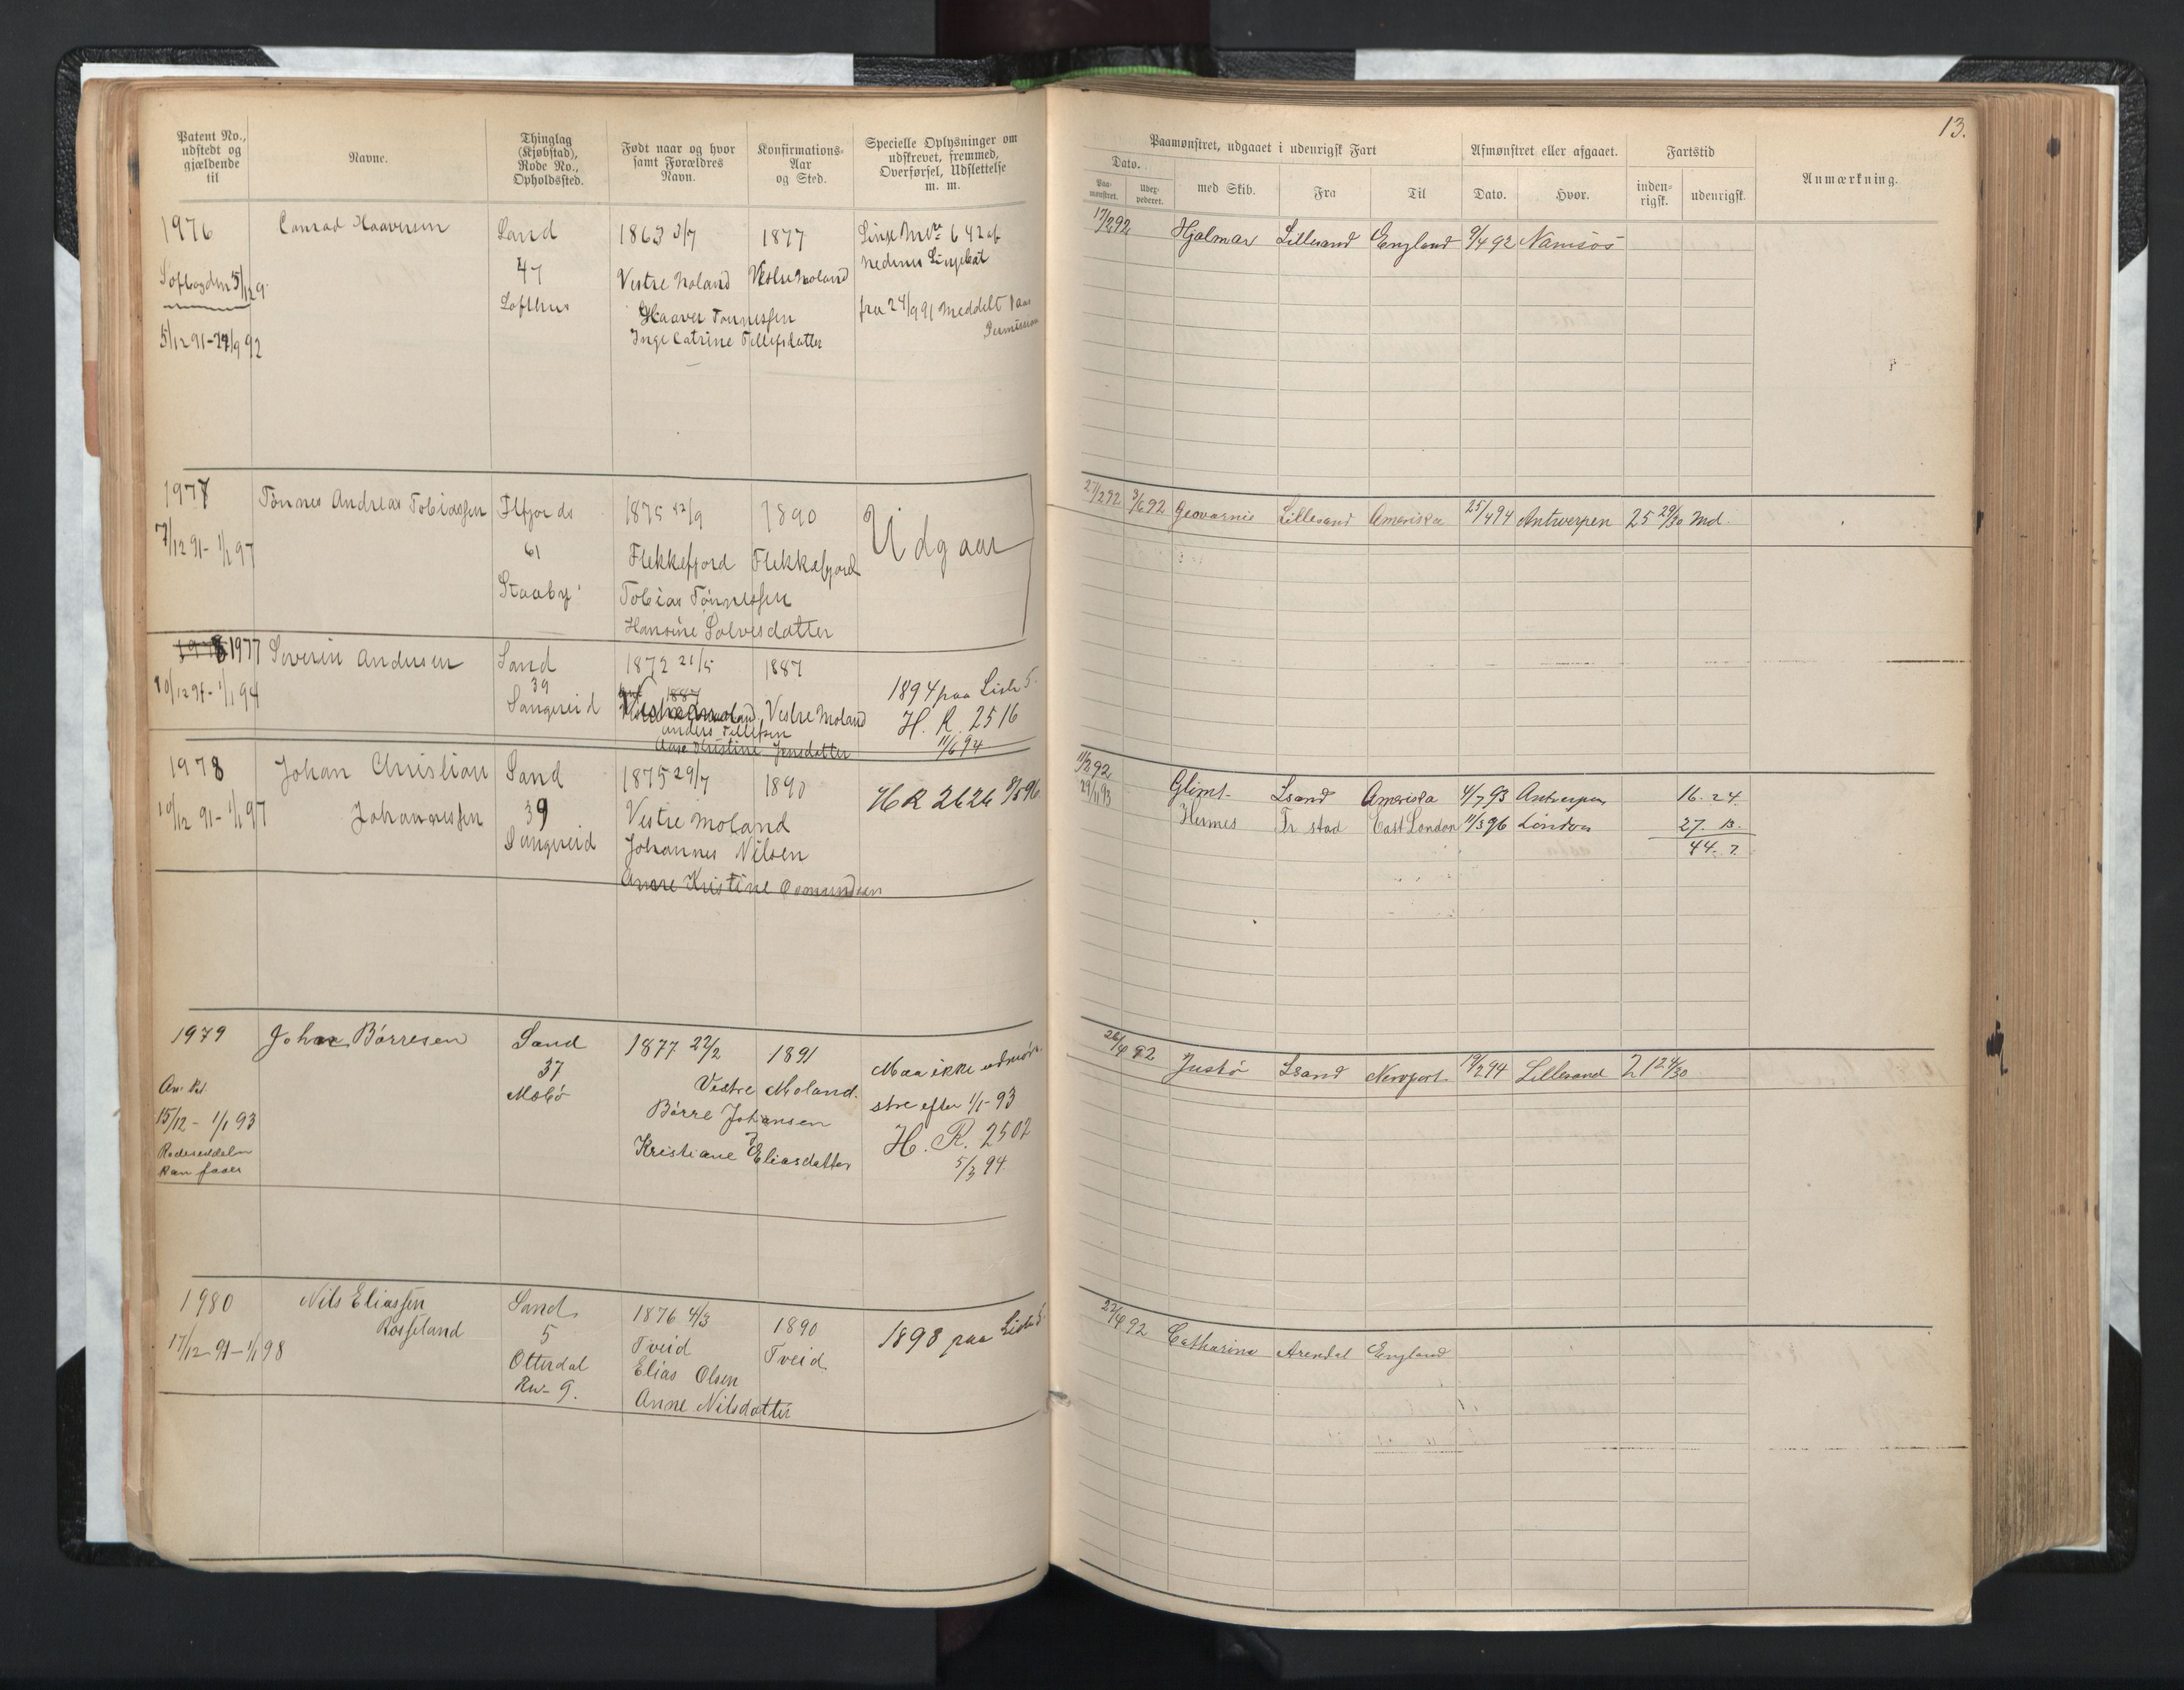 Patent No., udstedt og gjældende til
Navne.
Thinglag (Kjøbstad), Rode No., Opholdssted.
Født naar og hvor samt Forældres Navn.
Konfirmations-Aar og Sted.
Specielle Oplysninger om udskrevet, fremmed, Overførsel, Udslettelse m. m.
Paamønstret, udgaaet i udenrigsk Fart
Dato.
Paamønstret.
Udexpederet.
med Skib.
Fra
Til
Afmønstret eller afgaaet.
Dato.
Hvor.
Fartstid
indenrigsk.
udenrigsk.
Anmærkning.
13.
1976
Conrad Haaversen
Sand
47
Lofthus
1863 3/7
Vestre Moland
Haaver Tønnessen
Inge Catrine Tellefsdatter
1877
Vestre Moland
5/12 91-24/9 92
fra 24/9 91 meddelt 1 aars
Permission
17/2 92
Hjalmar
Lillesand
England
9/4 92
Namsos
1977
7/12 91 - 1/1 97
Tønnes Andreas Tobiassen
61
1875 12/9
Flekkefjord
Tobias Tønnessen
Hansine Solvesdatter
1890
Flekkefjord
Udgaar
27/2 92
3/6 92
Lillesand
Amerika
25/4 94
Antwerpen
25 29/30 Md.
1977
10/12 91 - 1/1 94
Severin Andersen
Sand
39
Sangereid
1872 21/5
Anders Tellefsen
Aase Kristine Jensdatter
1887
Vestre Moland
1894 paa Liste 5.
H. R. 2516
11/6 94
1978
10/12 91 - 1/1 97
Johan Christian
Johannessen
Sand
39
Sangereid
1875 29/7
Vestre Moland
Johannes Nilsen
Anne Kristine Osmundsen
1890
HR 2626 9/5 96
11/2 92
29/11 93
Glimt
Lsand
Amerika
4/7 93
Antwerpen
16. 24.
Hermes
Fr stad
East London
11/3 96
London
27. 13.
44. 7.
1979
15/12 - 1/1 93
Rodeseddelen
kan faaes
Johan Børresen
Sand
37
Molø
1877 22/2
Vestre Moland.
Børre Johansen
Kristiane Eliasdatter
1891
Maa ikke udmøn-
stre efter 1/1-93
H. R. 2502
5/3 94.
26/4 92
Justø
Lsand
Newport
19/2 94
Lillesand
21 24/30
1980
17/12 91 - 1/1 98
Nils Eliassen
Rosseland
Sand
5
Otterdal
Rw 9.
1876 4/3
Tveid
Elias Olsen
Anne Nilsdatter
1890
Tveid
1898 paa Liste 5.
22/4 92
Catharina
Arendal
England